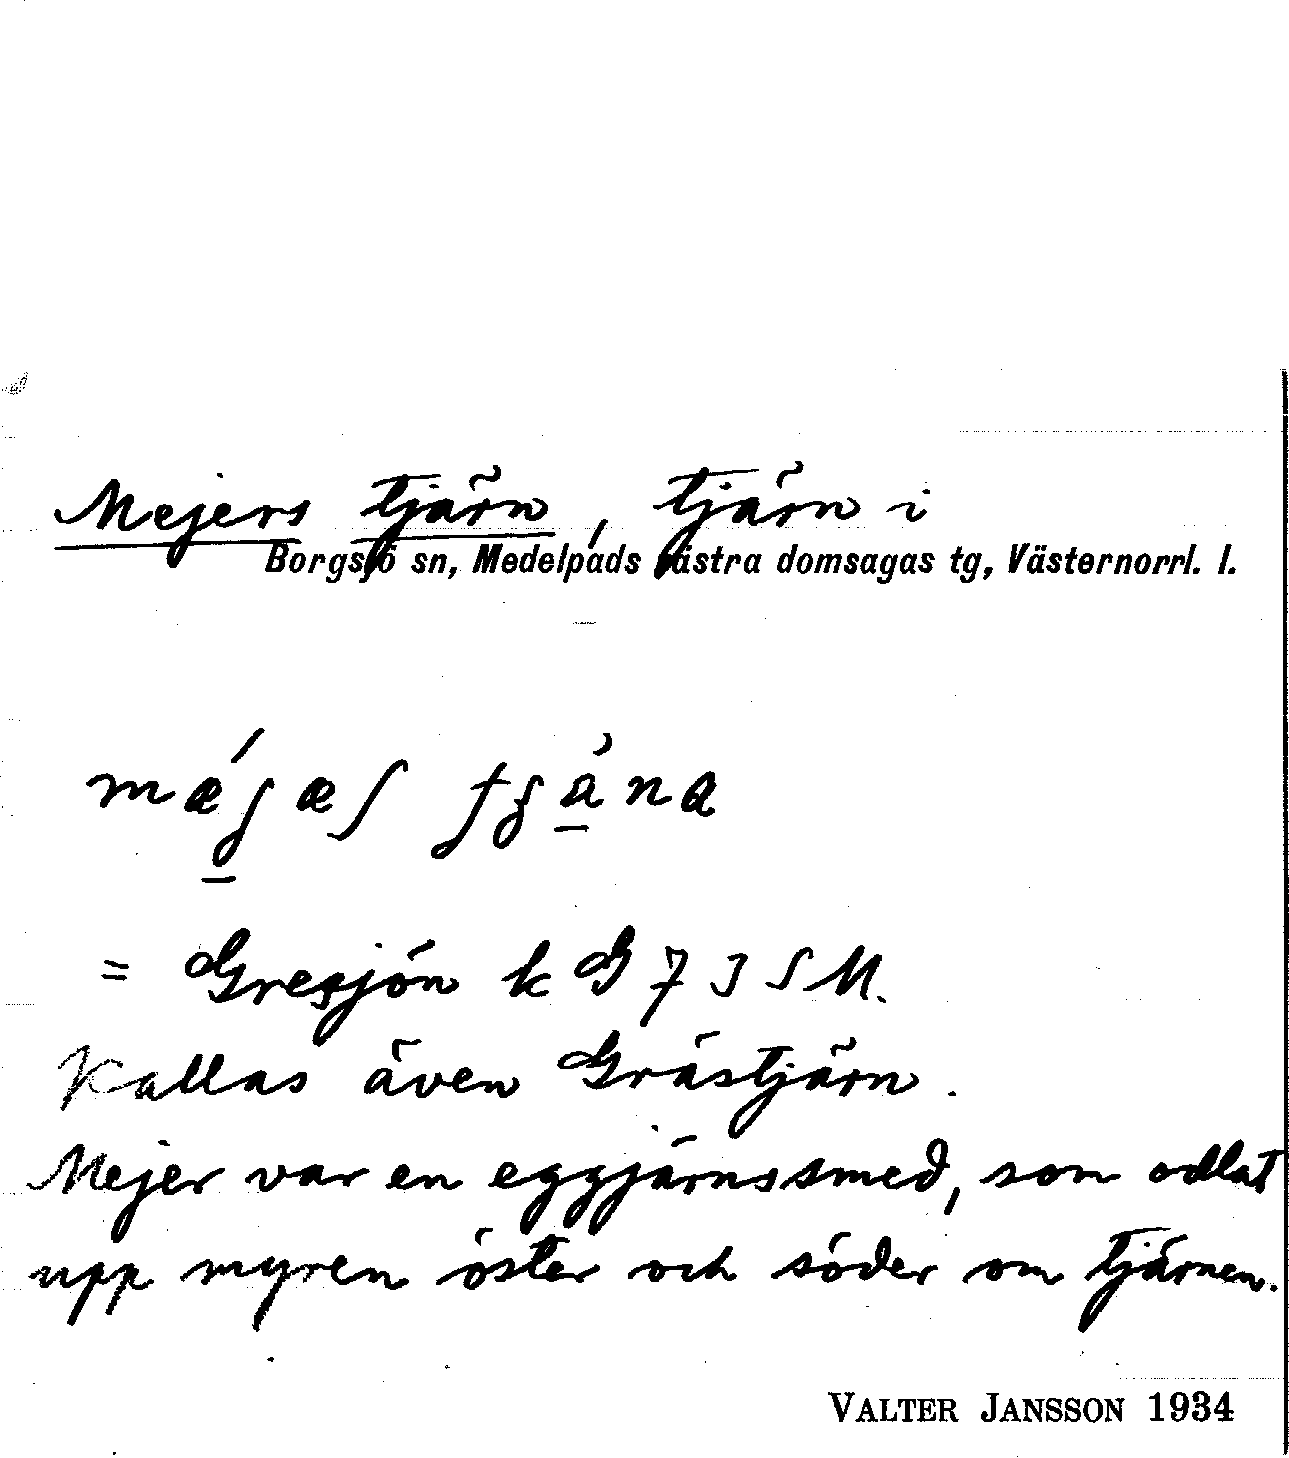 Mejers tjärn, tjärn i
Borgsjö sn, Medelpads västra domsagas tg, Västernorrl. l.
= Gresjön k G 7 J S M.
Kallas även Grästjärn.
Mejer var en eggjärnssmed, som odlat
upp myren öster och söder om tjärnen.
VALTER JANSSON 1934